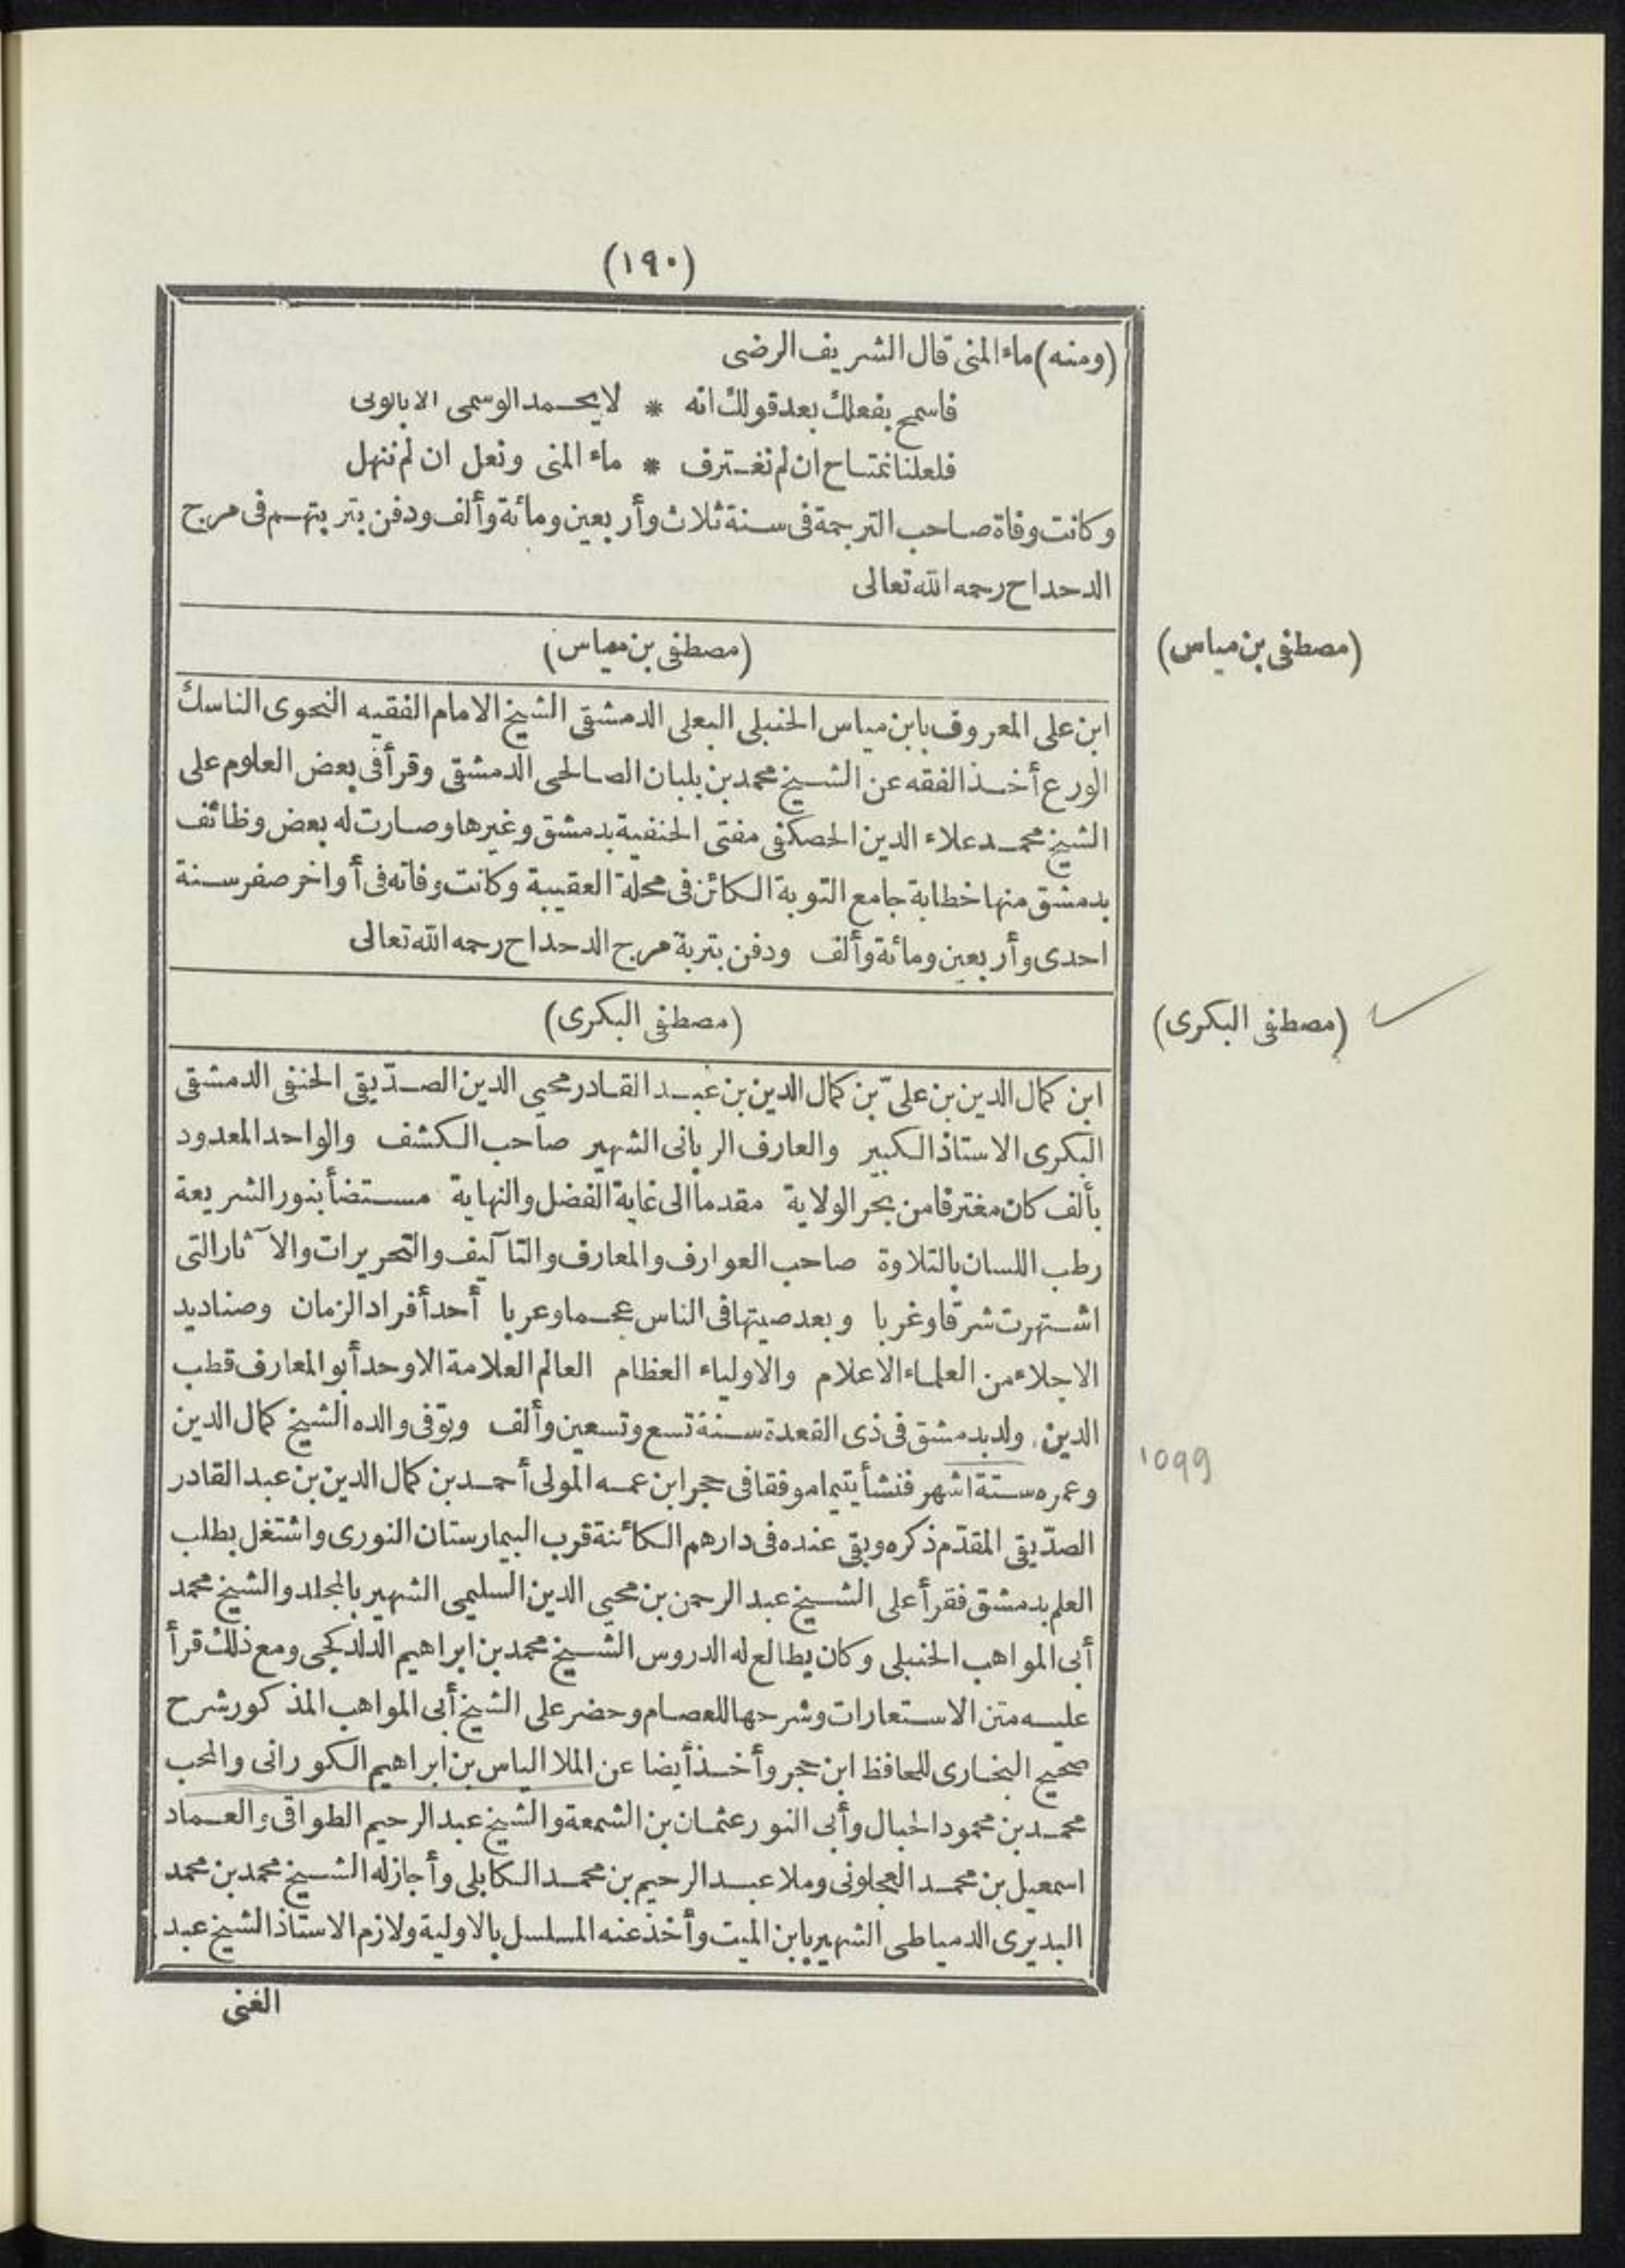 (١٩٠)
(ومنه) ماء المنى قال الشريف الرضى
فاسمح بفعلك بعد قولك انه * لا يحمد الوسمى الا بالولى
فلعلنا نمتاح ان لم نغترف * ماء المنى ونعل ان لم ننهل
وكانت وفاة صاحب الترجمة فى سنة ثلاث وأربعين ومائة وألف ودفن بتربتهم فى مرج
الدحداح رحمه الله تعالى
(مصطفى بن مياس)
(مصطفى بن مياس)
ابن على المعروف بابن مياس الحنبلى البعلى الدمشقى الشيخ الامام الفقيه النحوى الناسك
الورع أخذ الفقه عن الشيخ محمد بن بلبان الصالحى الدمشقى وقرأ فى بعض العلوم على
الشيخ محمد علاء الدين الحصكفى مفتى الحنفية بدمشق وغيرها وصارت له بعض وظائف
بدمشق منها خطابة جامع التوبة الكائن فى محلة العقيبة وكانت وفاته فى أواخر صفر سنة
احدى وأربعين ومائة وألف ودفن بتربة مرج الدحداح رحمه الله تعالى
(مصطفى البكرى)
(مصطفى البكرى)
ابن كمال الدين بن علىّ بن كمال الدين بن عبد القادر محيى الدين الصدّيقى الحنفى الدمشقى
البكرى الاستاذ الكبير والعارف الربانى الشهير صاحب الكشف والواحد المعدود
بألف كان مغترفا من بحر الولاية مقدما الى غاية الفضل والنهاية مستضأ بنور الشريعة
رطب اللسان بالتلاوة صاحب العوارف والمعارف والتآليف والتحريرات والآثار التى
اشتهرت شرقا وغربا وبعد صيتها فى الناس عجما وعربا أحد أفراد الزمان وصناديد
الاجلاء من العلماء الاعلام والاولياء العظام العالم العلامة الاوحد أبو المعارف قطب
الدين ولد بدمشق فى ذى القعدة سنة تسع وتسعين وألف وتوفى والده الشيخ كمال الدين
1099
وعمره ستة اشهر فنشأ يتيما موفقا فى حجر ابن عمه المولى أحمد بن كمال الدين بن عبد القادر
الصدّيقى المقدّم ذكره وبقى عنده فى دارهم الكائنة قرب البيمارستان النورى واشتغل بطلب
العلم بدمشق فقرأ على الشيخ عبد الرحمن بن محيى الدين السليمى الشهير بالمجلد والشيخ محمد
أبى المواهب الحنبلى وكان يطالع له الدروس الشيخ محمد بن ابراهيم الدلدكجى ومع ذلك قرأ
عليه متن الاستعارات وشرحها للعصام وحضر على الشيخ أبى المواهب المذكور شرح
صحيح البخارى للحافظ ابن حجر وأخذ أيضا عن الملا الياس بن ابراهيم الكورانى والمحب
محمد بن محمود الحبال وأبى النور عثمان بن الشمعة والشيخ عبد الرحيم الطواقى والعماد
اسمعيل بن محمد العجلونى وملا عبد الرحيم بن محمد الكابلى وأجاز له الشيخ محمد بن محمد
البديرى الدمياطى الشهير بابن الميت وأخذ عنه المسلسل بالاولية ولازم الاستاذ الشيخ عبد
الغنى